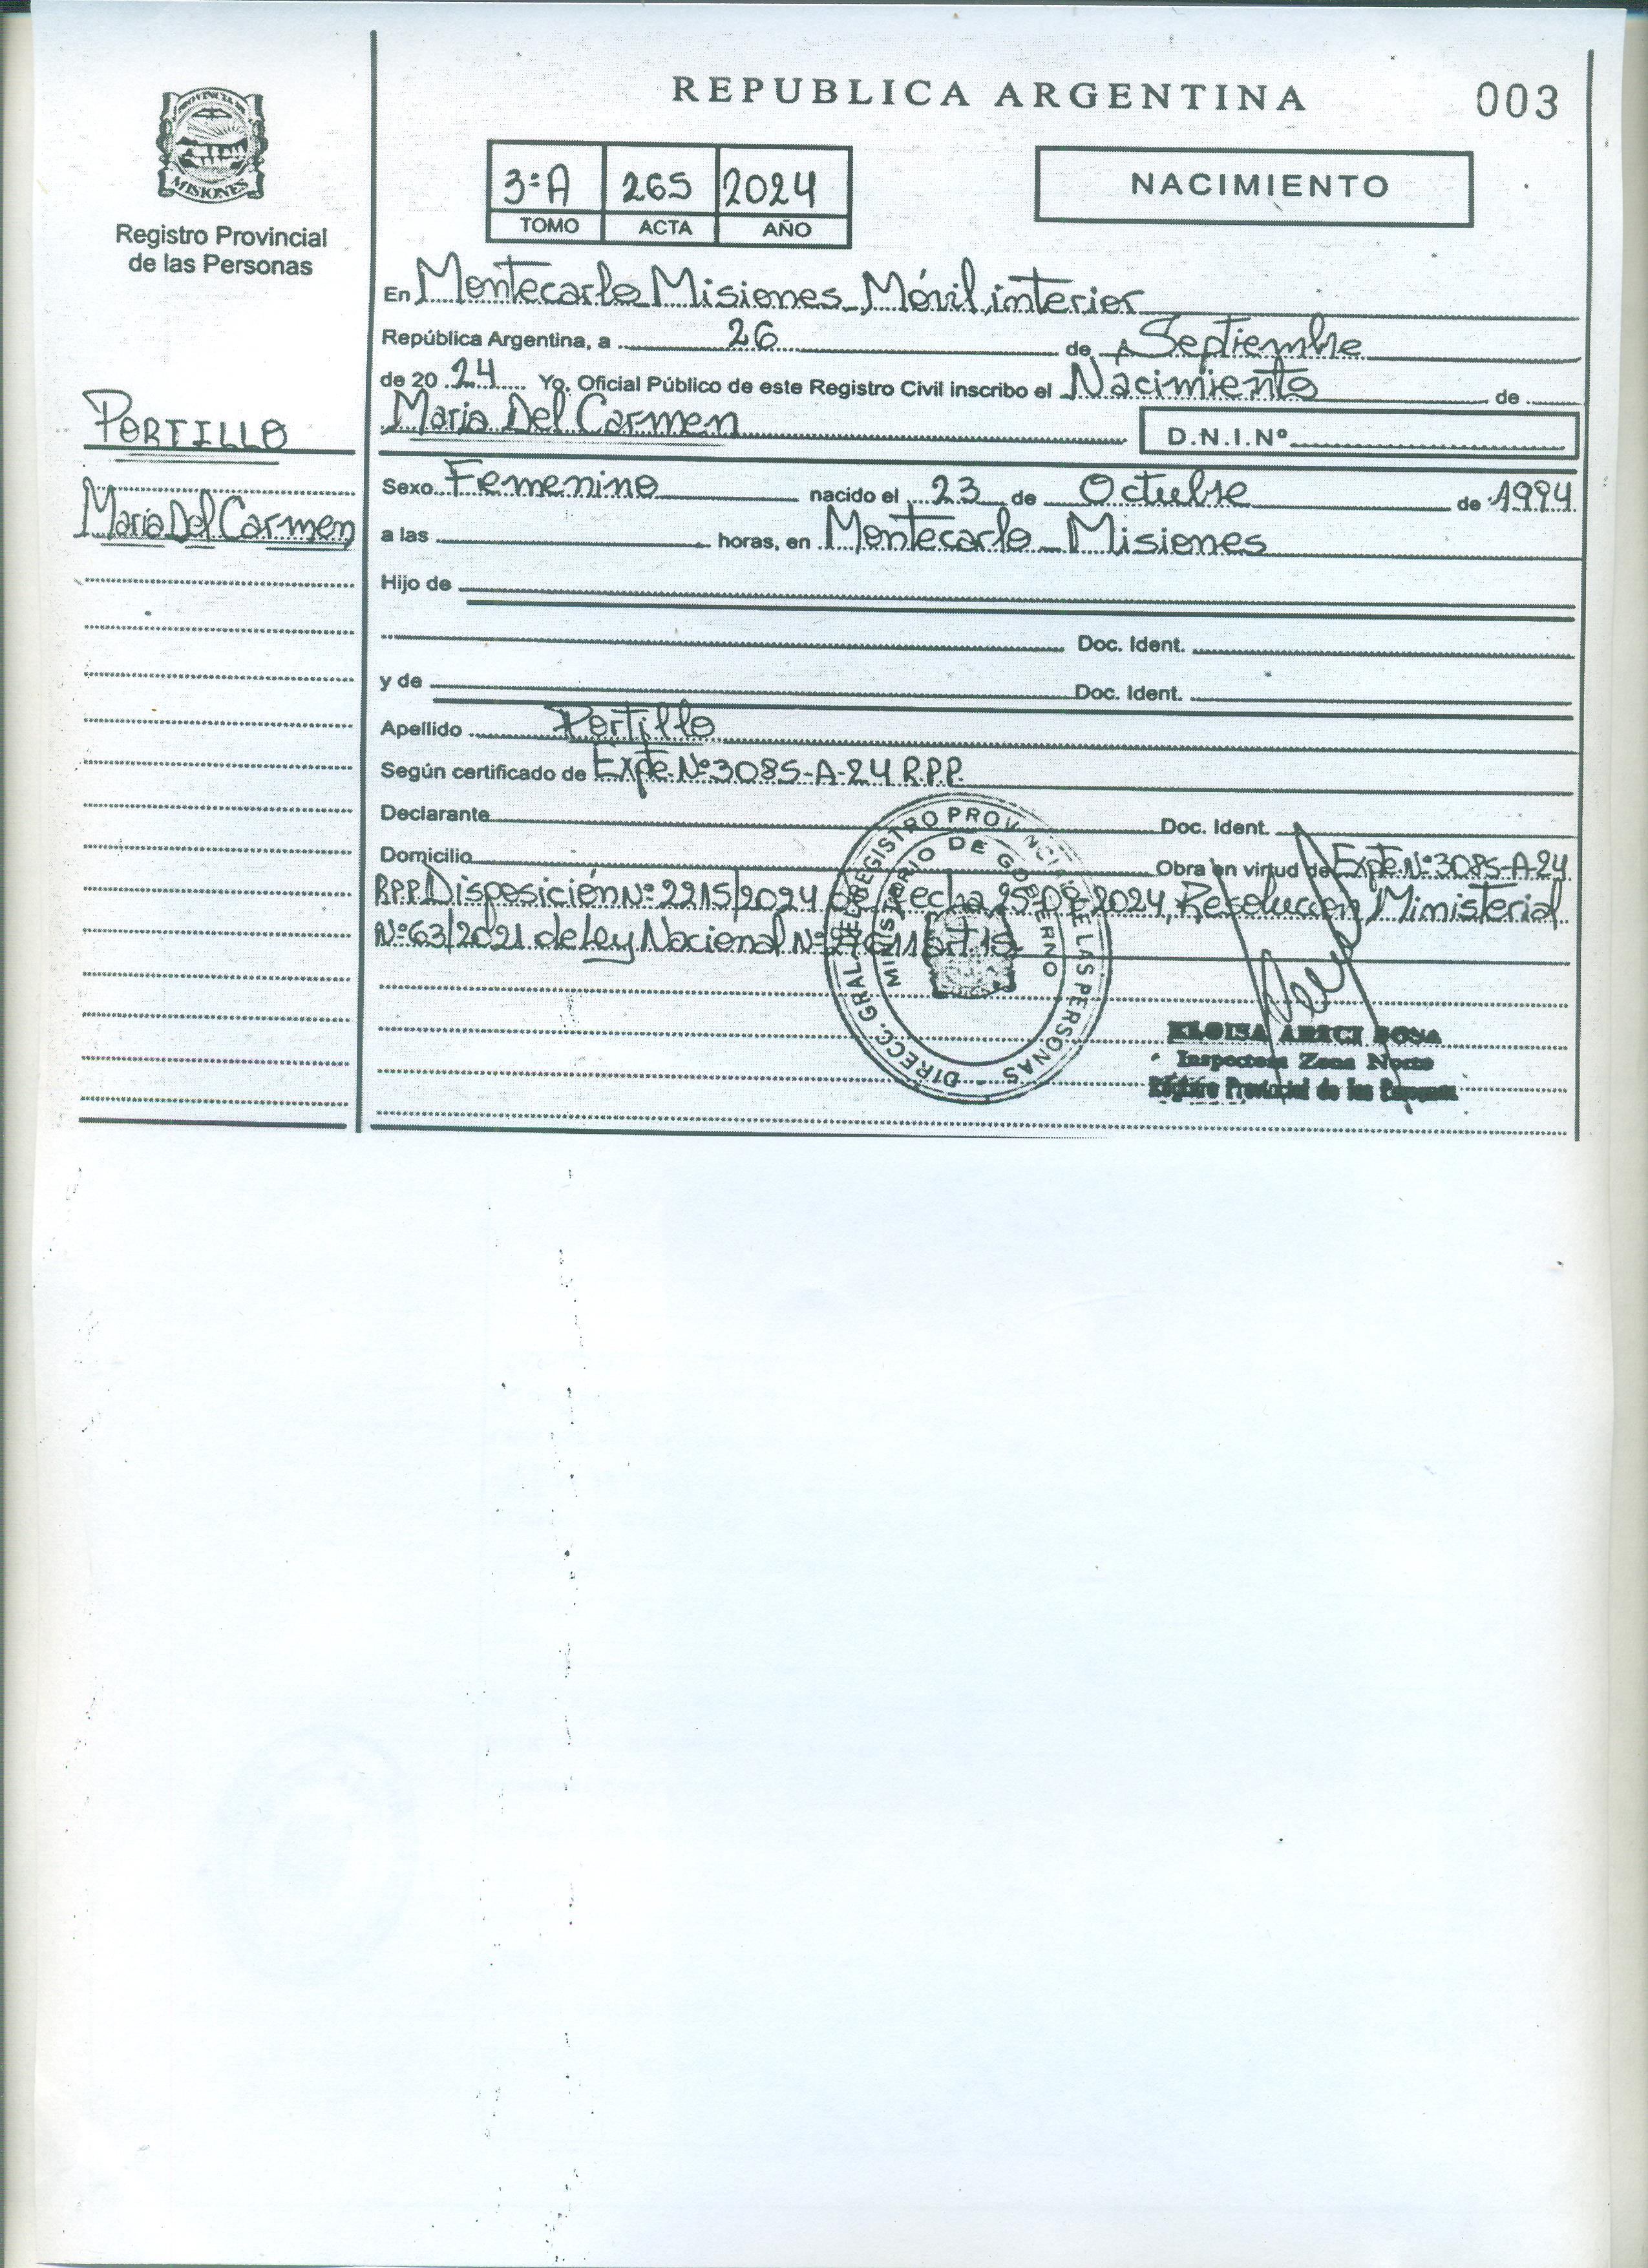 REPUBLICA ARGENTINA
003
PROVINCIA DE
MISIONES
Registro Provincial
de las Personas
3ºA 265 2024
TOMO ACTA AÑO
NACIMIENTO
En Montecarlo Misiones Móvil interior
República Argentina, a 26 de Septiembre
de 20 24 Yo. Oficial Público de este Registro Civil inscribo el Nacimiento de
Maria Del Carmen D.N.I.Nº
PORTILLO
Maria Del Carmen
Sexo Femenino nacido el 23 de Octubre de 1994
a las horas, en Montecarlo Misiones
Hijo de
Doc. Ident.
y de Doc. Ident.
Apellido Portillo
Según certificado de Expte Nº 3085-A-24 R.P.P.
Declarante Doc. Ident.
Domicilio Obra en virtud de Expte Nº 3085-A-24
RPP. Disposición Nº 2215/2024 de fecha 25-09-2024, Resolución Ministerial
Nº 63/2021 de Ley Nacional Nº
DIRECC. GRAL. DEL REGISTRO PROVINCIAL DE LAS PERSONAS
MINISTERIO DE GOBIERNO
ELOISA ARECI SOSA
Inspectora Zona Norte
Registro Provincial de las Personas